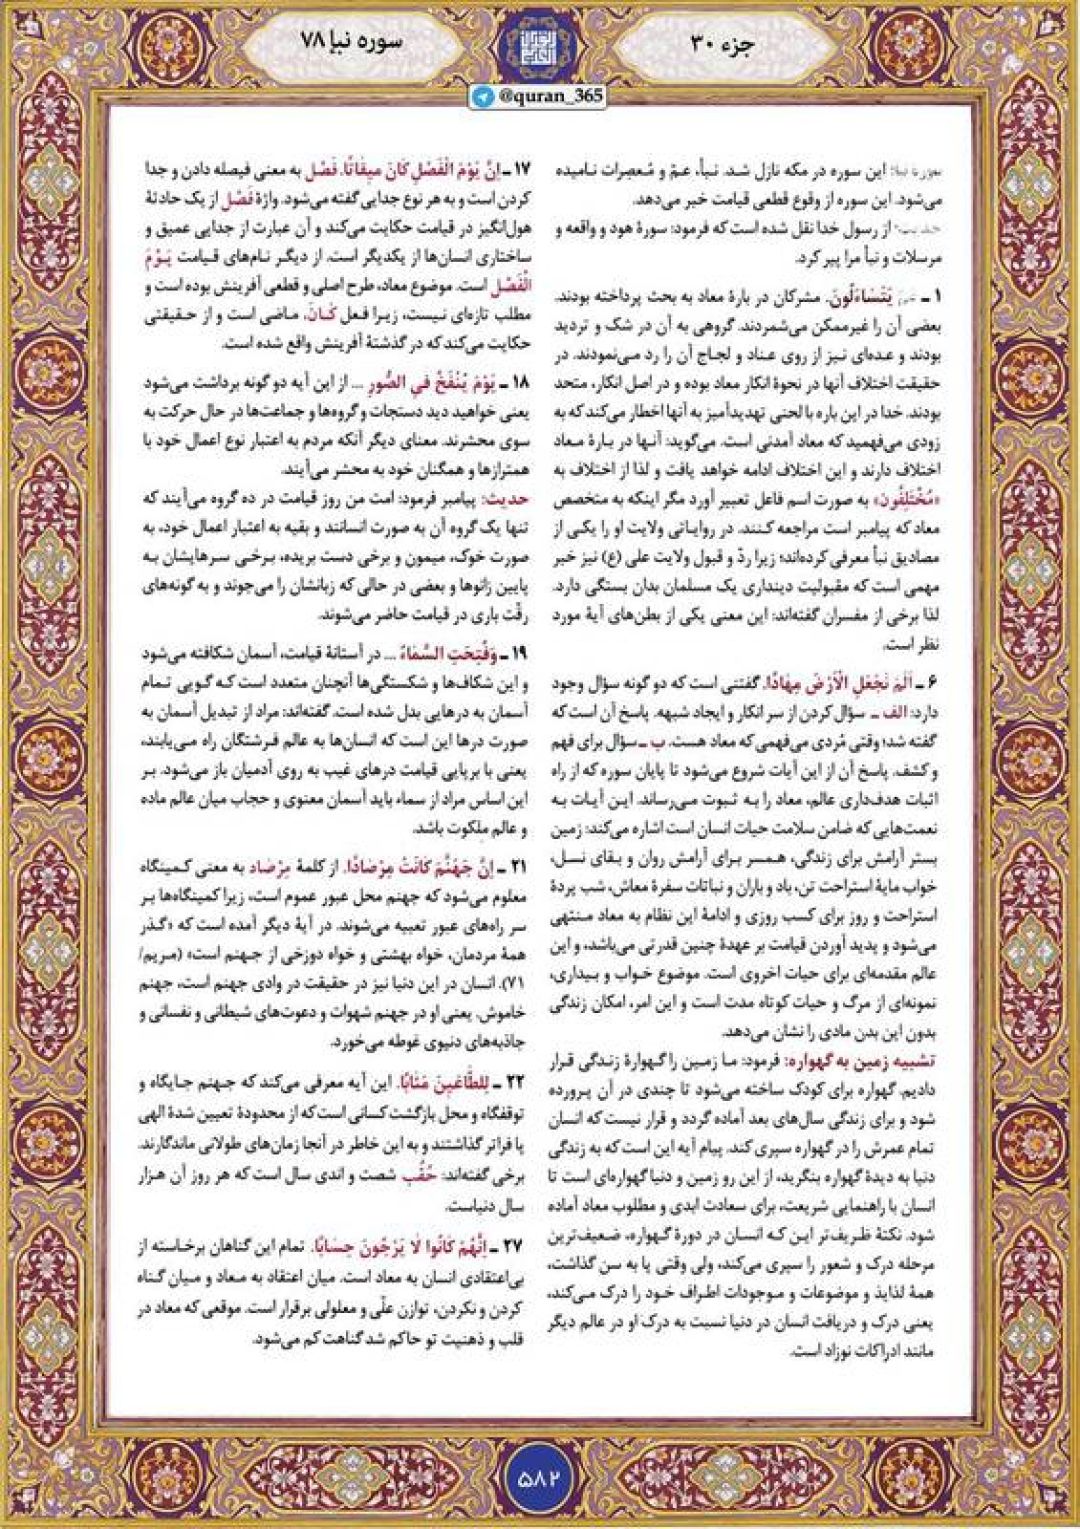 جزء ۳۰
سوره نبإ ۷۸
@quran_365
سوره نبأ: این سوره در مکه نازل شد. نبأ، عمّ و مُعصِرات نامیده
می‌شود. این سوره از وقوع قطعی قیامت خبر می‌دهد.
حدیث: از رسول خدا نقل شده است که فرمود: سورهٔ هود و واقعه و
مرسلات و نبأ مرا پیر کرد.
۱ ـ عَمَّ یَتَسَاءَلُونَ. مشرکان در بارهٔ معاد به بحث پرداخته بودند.
بعضی آن را غیرممکن می‌شمردند. گروهی به آن در شک و تردید
بودند و عده‌ای نیز از روی عناد و لجاج آن را رد می‌نمودند. در
حقیقت اختلاف آنها در نحوهٔ انکار معاد بوده و در اصل انکار، متحد
بودند. خدا در این باره با لحنی تهدیدآمیز به آنها اخطار می‌کند که به
زودی می‌فهمید که معاد آمدنی است. می‌گوید: آنها در بارهٔ معاد
اختلاف دارند و این اختلاف ادامه خواهد یافت و لذا از اختلاف به
«مُخْتَلِفُون» به صورت اسم فاعل تعبیر آورد مگر اینکه به متخصص
معاد که پیامبر است مراجعه کنند. در روایاتی ولایت او را یکی از
مصادیق نبأ معرفی کرده‌اند؛ زیرا ردّ و قبول ولایت علی (ع) نیز خبر
مهمی است که مقبولیت دینداری یک مسلمان بدان بستگی دارد.
لذا برخی از مفسران گفته‌اند: این معنی یکی از بطن‌های آیهٔ مورد
نظر است.
۶ ـ اَلَمْ نَجْعَلِ الْاَرْضَ مِهَادًا. گفتنی است که دو گونه سؤال وجود
دارد: الف ـ سؤال کردن از سر انکار و ایجاد شبهه. پاسخ آن است که
گفته شد؛ وقتی مُردی می‌فهمی که معاد هست. ب ـ سؤال برای فهم
و کشف. پاسخ آن از این آیات شروع می‌شود تا پایان سوره که از راه
اثبات هدف‌داری عالم، معاد را به ثبوت می‌رساند. این آیات به
نعمت‌هایی که ضامن سلامت حیات انسان است اشاره می‌کند: زمین
بستر آرامش برای زندگی، همسر برای آرامش روان و بقای نسل،
خواب مایهٔ استراحت تن، باد و باران و نباتات سفرهٔ معاش، شب پردهٔ
استراحت و روز برای کسب روزی و ادامهٔ این نظام به معاد منتهی
می‌شود و پدید آوردن قیامت بر عهدهٔ چنین قدرتی می‌باشد، و این
عالم مقدمه‌ای برای حیات اخروی است. موضوع خواب و بیداری،
نمونه‌ای از مرگ و حیات کوتاه مدت است و این امر، امکان زندگی
بدون این بدن مادی را نشان می‌دهد.
تشبیه زمین به گهواره: فرمود: ما زمین را گهوارهٔ زندگی قرار
دادیم. گهواره برای کودک ساخته می‌شود تا چندی در آن پرورده
شود و برای زندگی سال‌های بعد آماده گردد و قرار نیست که انسان
تمام عمرش را در گهواره سپری کند. پیام آیه این است که به زندگی
دنیا به دیدهٔ گهواره بنگرید، از این رو زمین و دنیا گهواره‌ای است تا
انسان با راهنمایی شریعت، برای سعادت ابدی و مطلوب معاد آماده
شود. نکتهٔ ظریف‌تر این که انسان در دورهٔ گهواره، ضعیف‌ترین
مرحله درک و شعور را سپری می‌کند، ولی وقتی پا به سن گذاشت،
همهٔ لذایذ و موضوعات و موجودات اطراف خود را درک می‌کند،
یعنی درک و دریافت انسان در دنیا نسبت به درک او در عالم دیگر
مانند ادراکات نوزاد است.
۱۷ ـ اِنَّ یَوْمَ الْفَصْلِ کَانَ مِیقَاتًا. فَصْل به معنی فیصله دادن و جدا
کردن است و به هر نوع جدایی گفته می‌شود. واژهٔ فَصْل از یک حادثهٔ
هول‌انگیز در قیامت حکایت می‌کند و آن عبارت از جدایی عمیق و
ساختاری انسان‌ها از یکدیگر است. از دیگر نام‌های قیامت یَوْمَ
الْفَصْل است. موضوع معاد، طرح اصلی و قطعی آفرینش بوده است و
مطلب تازه‌ای نیست، زیرا فعل کَانَ، ماضی است و از حقیقتی
حکایت می‌کند که در گذشتهٔ آفرینش واقع شده است.
۱۸ ـ یَوْمَ یُنْفَخُ فِی الصُّورِ ... از این آیه دو گونه برداشت می‌شود
یعنی خواهید دید دستجات و گروه‌ها و جماعت‌ها در حال حرکت به
سوی محشرند. معنای دیگر آنکه مردم به اعتبار نوع اعمال خود با
همترازها و همگنان خود به محشر می‌آیند.
حدیث: پیامبر فرمود: امت من روز قیامت در ده گروه می‌آیند که
تنها یک گروه آن به صورت انسانند و بقیه به اعتبار اعمال خود، به
صورت خوک، میمون و برخی دست بریده، برخی سرهایشان به
پایین زانوها و بعضی در حالی که زبانشان را می‌جوند و به گونه‌های
رقّت باری در قیامت حاضر می‌شوند.
۱۹ ـ وَفُتِحَتِ السَّمَاءُ ... در آستانهٔ قیامت، آسمان شکافته می‌شود
و این شکاف‌ها و شکستگی‌ها آنچنان متعدد است که گویی تمام
آسمان به درهایی بدل شده است. گفته‌اند: مراد از تبدیل آسمان به
صورت درها این است که انسان‌ها به عالم فرشتگان راه می‌یابند،
یعنی با برپایی قیامت درهای غیب به روی آدمیان باز می‌شود. بر
این اساس مراد از سماء باید آسمان معنوی و حجاب میان عالم ماده
و عالم ملکوت باشد.
۲۱ ـ اِنَّ جَهَنَّمَ کَانَتْ مِرْصَادًا. از کلمهٔ مِرْصَاد به معنی کمینگاه
معلوم می‌شود که جهنم محل عبور عموم است، زیرا کمینگاه‌ها بر
سر راه‌های عبور تعبیه می‌شوند. در آیهٔ دیگر آمده است که «گذر
همهٔ مردمان، خواه بهشتی و خواه دوزخی از جهنم است» (مریم/
۷۱). انسان در این دنیا نیز در حقیقت در وادی جهنم است، جهنم
خاموش. یعنی او در جهنم شهوات و دعوت‌های شیطانی و نفسانی و
جاذبه‌های دنیوی غوطه می‌خورد.
۲۲ ـ لِلطَّاغِینَ مَئَابًا. این آیه معرفی می‌کند که جهنم جایگاه و
توقفگاه و محل بازگشت کسانی است که از محدودهٔ تعیین شدهٔ الهی
پا فراتر گذاشتند و به این خاطر در آنجا زمان‌های طولانی ماندگارند.
برخی گفته‌اند: حُقُّب شصت و اندی سال است که هر روز آن هزار
سال دنیاست.
۲۷ ـ اِنَّهُمْ کَانُوا لَا یَرْجُونَ حِسَابًا. تمام این گناهان برخاسته از
بی‌اعتقادی انسان به معاد است. میان اعتقاد به معاد و میان گناه
کردن و نکردن، توازن علّی و معلولی برقرار است. موقعی که معاد در
قلب و ذهنیت تو حاکم شد گناهت کم می‌شود.
۵۸۲